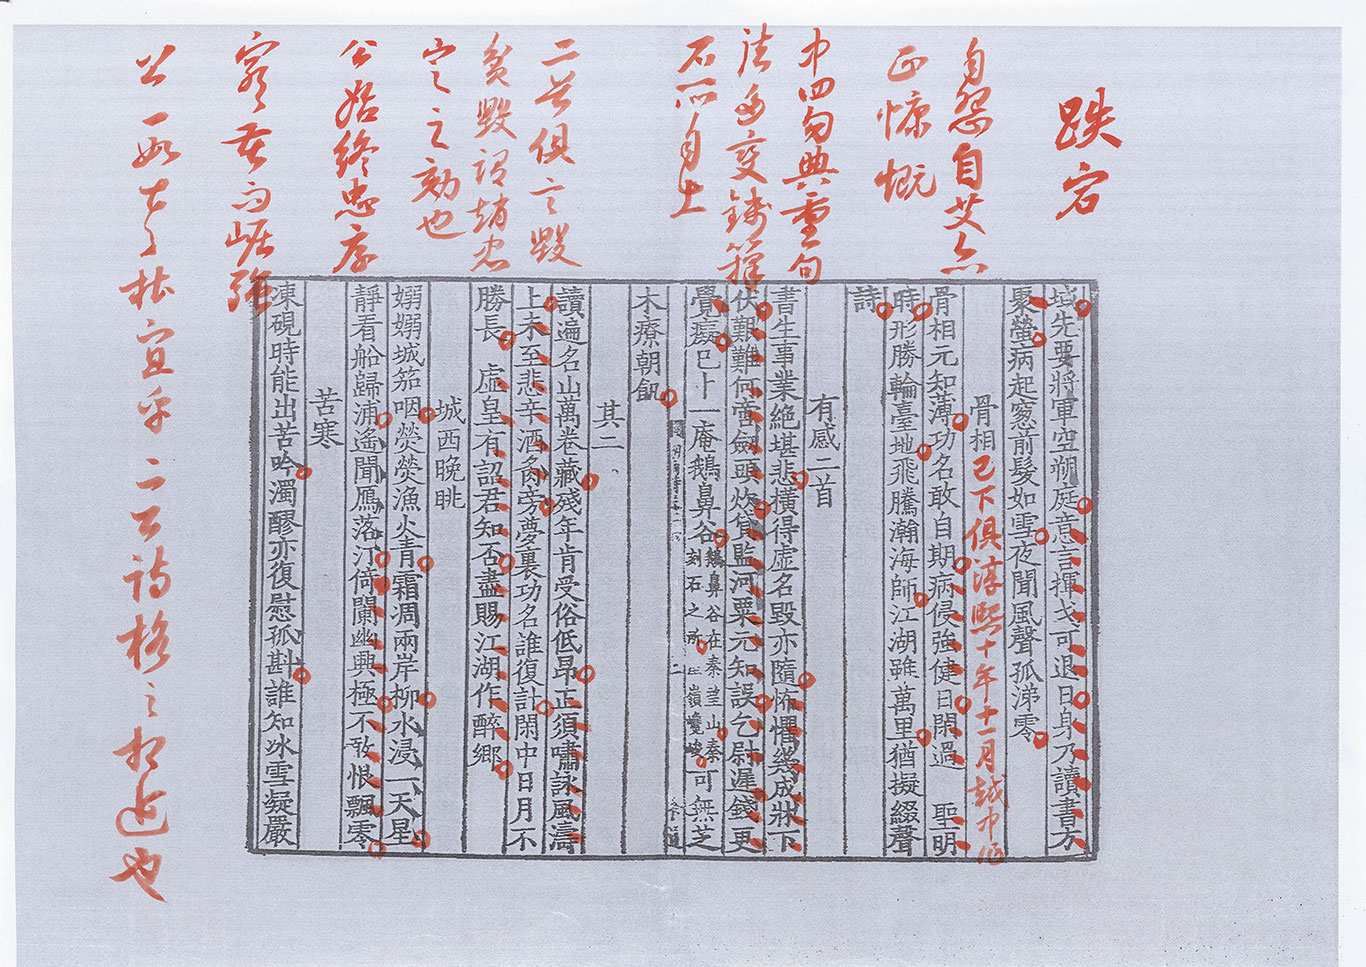 跌宕
自怨自艾亦
正慷慨
中四句典重句
法多变錢籜
石所自出
二首俱言毀
貧毀謂趙忠
定之効也
公始終忠厚
窮老而崛強
域先要將軍空朔庭意言揮戈可退日身乃讀書方
聚螢病起窓前髮如雪夜聞風聲孤涕零
骨相
己下俱淳熙十年十一月越中作
骨相元知薄功名敢自期病侵強健日閑過 聖明
時形勝輪臺地飛騰瀚海師江湖雖萬里猶擬綴聲
詩
有感二首
書生事業絶堪悲橫得虛名毀亦隨怖懼幾成牀下
伏艱難何啻劒頭炊貸監河粟元知誤乞尉遲錢更
覺癡已卜一庵鵝鼻谷
鵝鼻谷在秦望山秦
刻石之所
嶺巉峻
可無芝
木療朝飢
其二
讀遍名山萬卷藏殘年肯受俗低昂正須嘯詠風濤
上未至悲辛酒炙旁夢裏功名誰復計閑中日月不
勝長 虛皇有詔君知否盡賜江湖作醉鄉
城西晚眺
嫋嫋城笳咽熒熒漁火青霜凋兩岸柳水浸一天星
靜看船歸浦遙聞鴈落汀倚闌幽興極不敢恨飄零
苦寒
凍硯時能出苦吟濁醪亦復慰孤斟誰知冰雪凝嚴